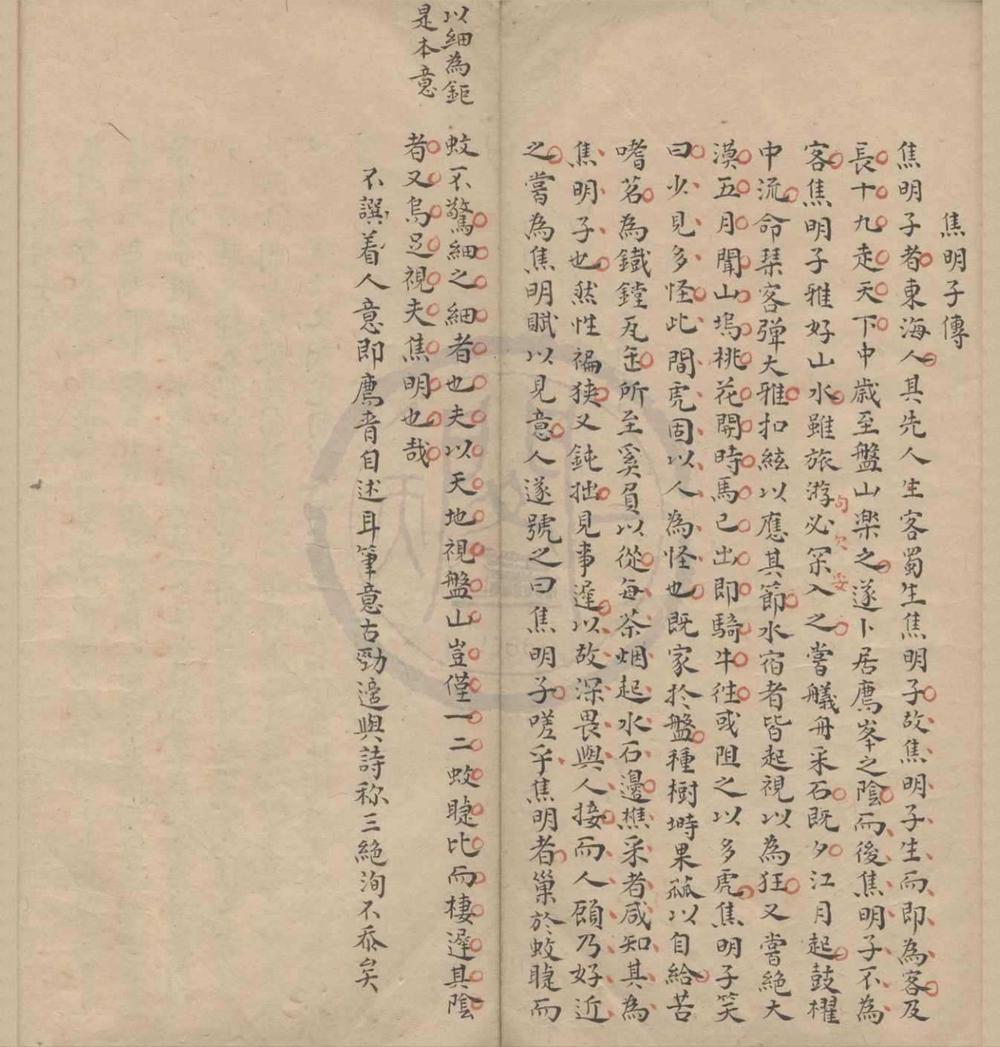 焦明子傳
焦明子者東海人其先人生客蜀生焦明子故焦明子生而即為客及
長十九走天下中歲至盤山樂之遂卜居鷹峯之陰而後焦明子不為
客焦明子雅好山水雖旅游必罙入之嘗艤舟采石既夕江月起鼓櫂
句欠安
中流命琹客彈大雅扣絃以應其節水宿者皆起視以為狂又嘗絕大
漠五月聞山塢桃花開時馬已出即騎牛徃或阻之以多虎焦明子笑
曰少見多怪此間虎固以人為怪也既家於盤種樹塒果蓏以自給苦
嗜茗為鐵鐺瓦缶所至奚負以從每茶烟起水石邊樵采者咸知其為
焦明子也然性褊狹又鈍拙見事遲以故深畏與人接而人顧乃好近
之嘗為焦明賦以見意人遂號之曰焦明子嗟乎焦明者巢於蚊睫而
以細為鉅
是本意
蚊不驚細之細者也夫以天地視盤山豈僅一二蚊睫比而棲遲其陰
者又烏足視夫焦明也哉
不譔着人意即鷹青自述耳筆意古勁邁與詩称三絶洵不忝矣